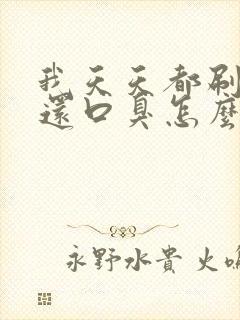 我天天都刷
還口臭怎麼
永野水貴 火